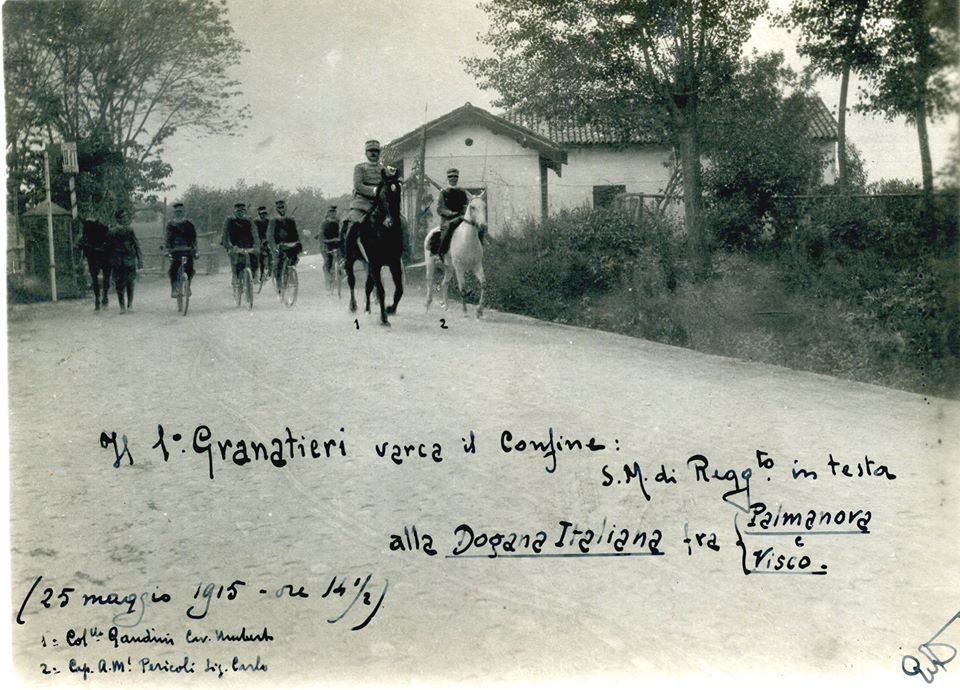 1 2
Il 1º. Granatieri varca il Confine:
S.M. di Reggto. in testa
alla Dogana Italiana fra { Palmanova
e
Visco.
(25 maggio 1915 - ore 14 1/2)
1= Collo Gandini Cav. Umberto
2= Cap. A.Mª Pericoli Sig. Carlo